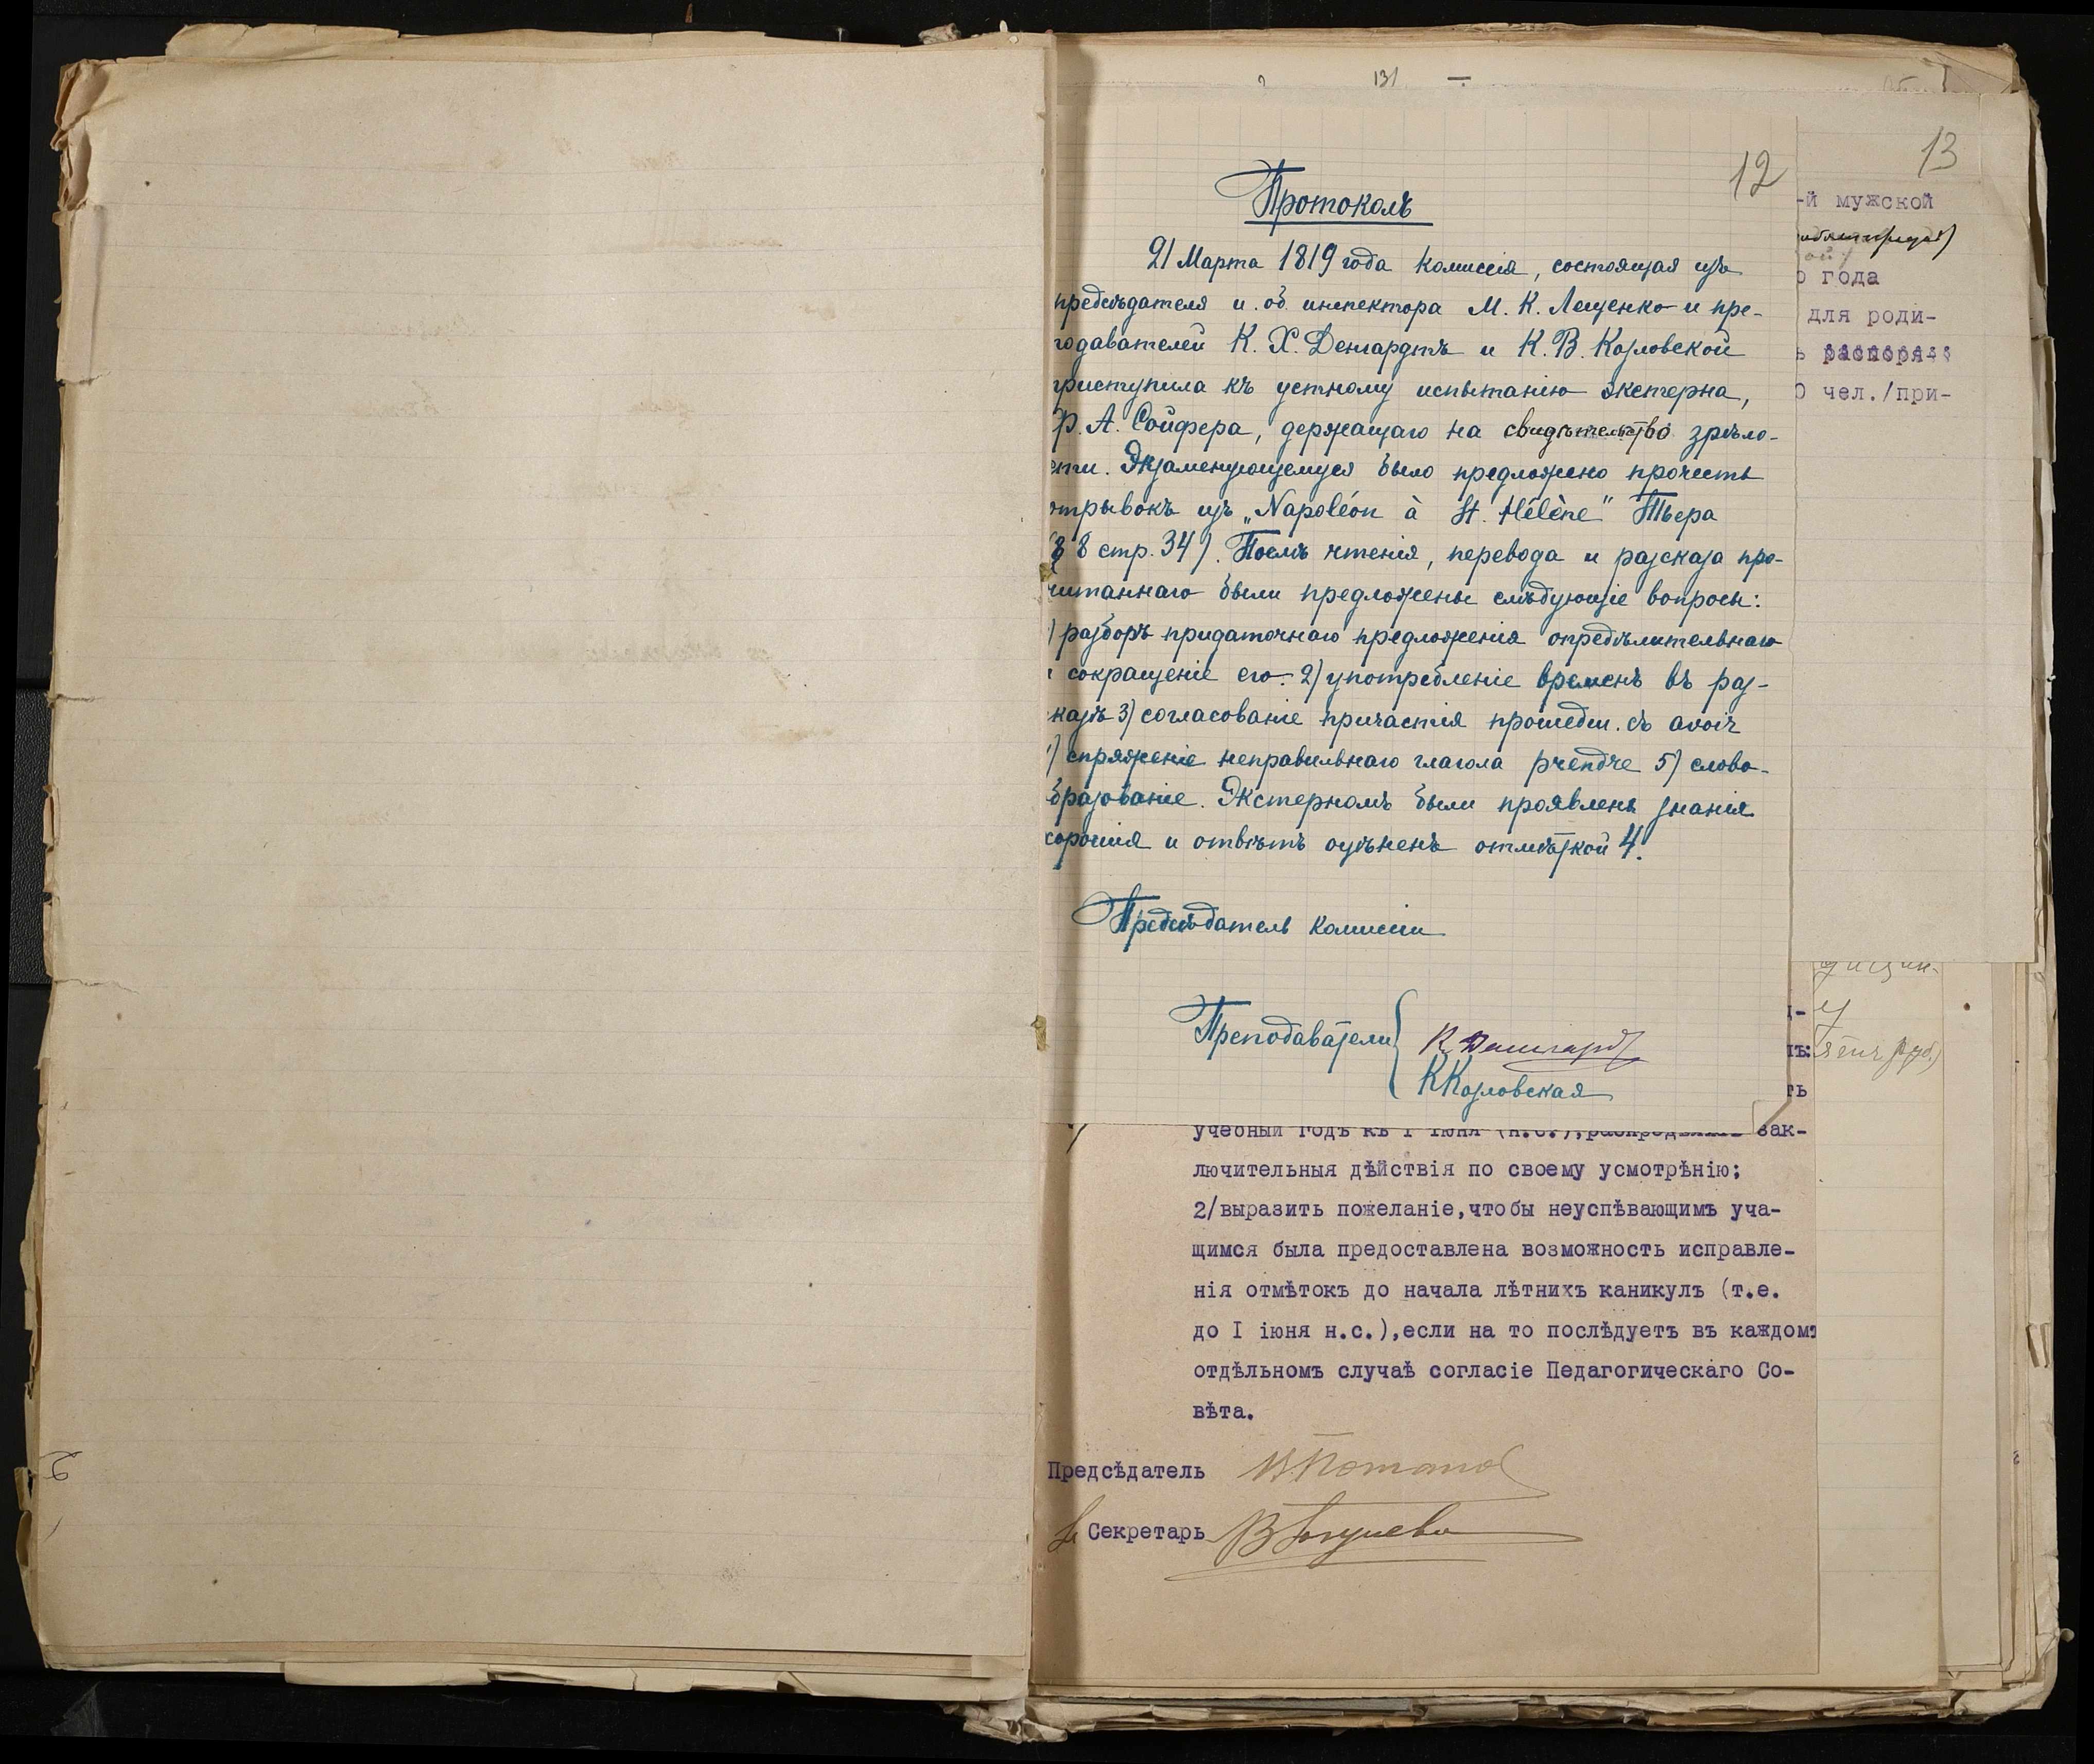 131 —
12
13
Протоколъ
21 Марта 1819 года комиссія, состоящая изъ
предсѣдателя и. об. инспектора М. К. Лещенко и пре-
подавателей К. Х. Денгардтъ и К. В. Козловской
приступила къ устному испытанію экстерна,
Р. А. Сойфера, держащаго на свидѣтельство зрѣло-
сти. Экзаменующемуся было предложено прочесть
отрывокъ изъ „Napoléon à St. Hélène" Тьера
8 стр. 34). Послѣ чтенія, перевода и разсказа про-
читаннаго были предложены слѣдующіе вопросы:
) разборъ придаточнаго предложенія опредѣлительнаго
и сокращеніе его. 2) употребленіе временъ въ раз-
сказѣ 3) согласованіе причастія прошедш. съ avoir
) спряженіе неправильнаго глагола prendre 5) слово-
образованіе. Экстерномъ были проявлены знанія
хорошія и отвѣтъ оцѣненъ отмѣткой 4.
Предсѣдатель комиссіи
Преподаватели
К. Денгардт
К Козловская
-й мужской
о года
для роди-
ь распоря
0 чел./при-
ть
учебный годъ къ I іюня (н.с.), зак-
лючительныя дѣйствія по своему усмотрѣнію;
2/выразить пожеланіе,чтобы неуспѣвающимъ уча-
щимся была предоставлена возможность исправле-
нія отмѣтокъ до начала лѣтнихъ каникулъ (т.е.
до I іюня н.с.),если на то послѣдуетъ въ каждомъ
отдѣльномъ случаѣ согласіе Педагогическаго Со-
вѣта.
Предсѣдатель
Секретарь